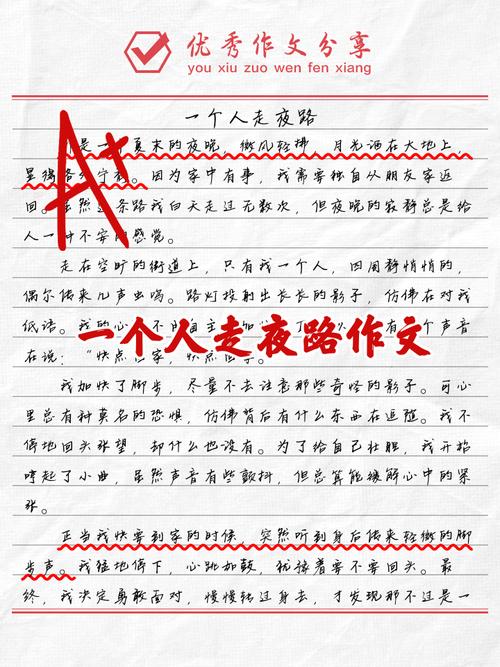 优秀作文分享
you xiu zuo wen fen xiang
一个人走夜路
是一个夏末的夜晚，微风轻拂，月光洒在大地上，
显得格外宁静。因为家中有事，我需要独自从朋友家返
回。虽然这条路我白天走过无数次，但夜晚的寂静总是给
人一种不安的感觉。
走在空旷的街道上，只有我一个人，四周静悄悄的，
偶尔传来几声虫鸣。路灯投射出长长的影子，仿佛在对我
低语。我的心
一个人走夜路作文
个声音
在说：“快点
我加快了脚步，尽量不去注意那些奇怪的影子。可心
里总有种莫名的恐惧，仿佛背后有什么东西在追随。我不
停地回头张望，却什么也没有。为了给自己壮胆，我开始
哼起了小曲，虽然声音有些颤抖，但总算能缓解心中的紧
张。
正当我快要到家的时候，突然听到身后传来轻微的脚
步声。我猛地停下，心跳加鼓，犹豫着要不要回头。最
终，我决定勇敢面对，慢慢转过身去，才发现那不过是一